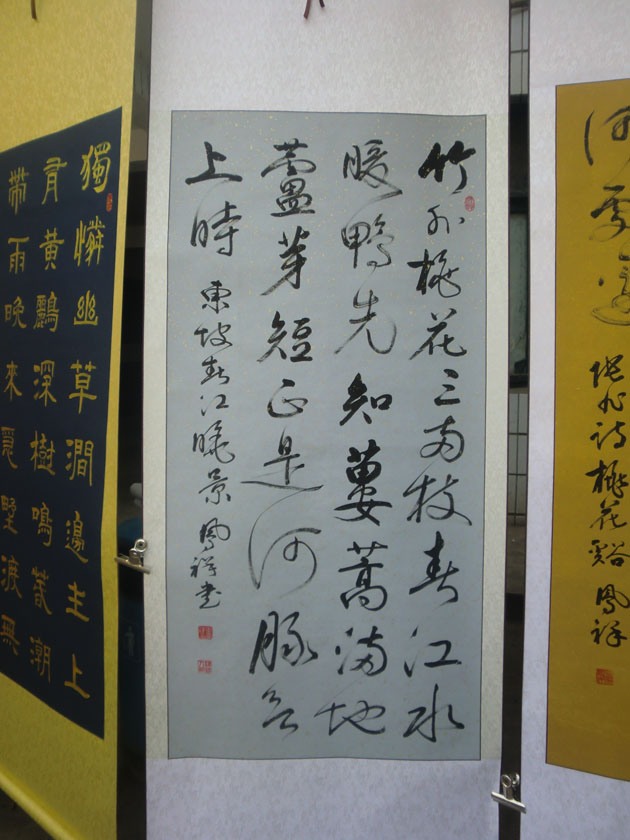 何處邊 張旭詩桃花谿 鳳祥
竹外桃花三两枝春江水
暖鴨先知蔞蒿滿地
蘆芽短正是河豚欲
上時 東坡春江曉景 鳳祥書
獨憐幽草澗邊生上
有黃鸝深樹鳴春潮
帶雨晚來急野渡無